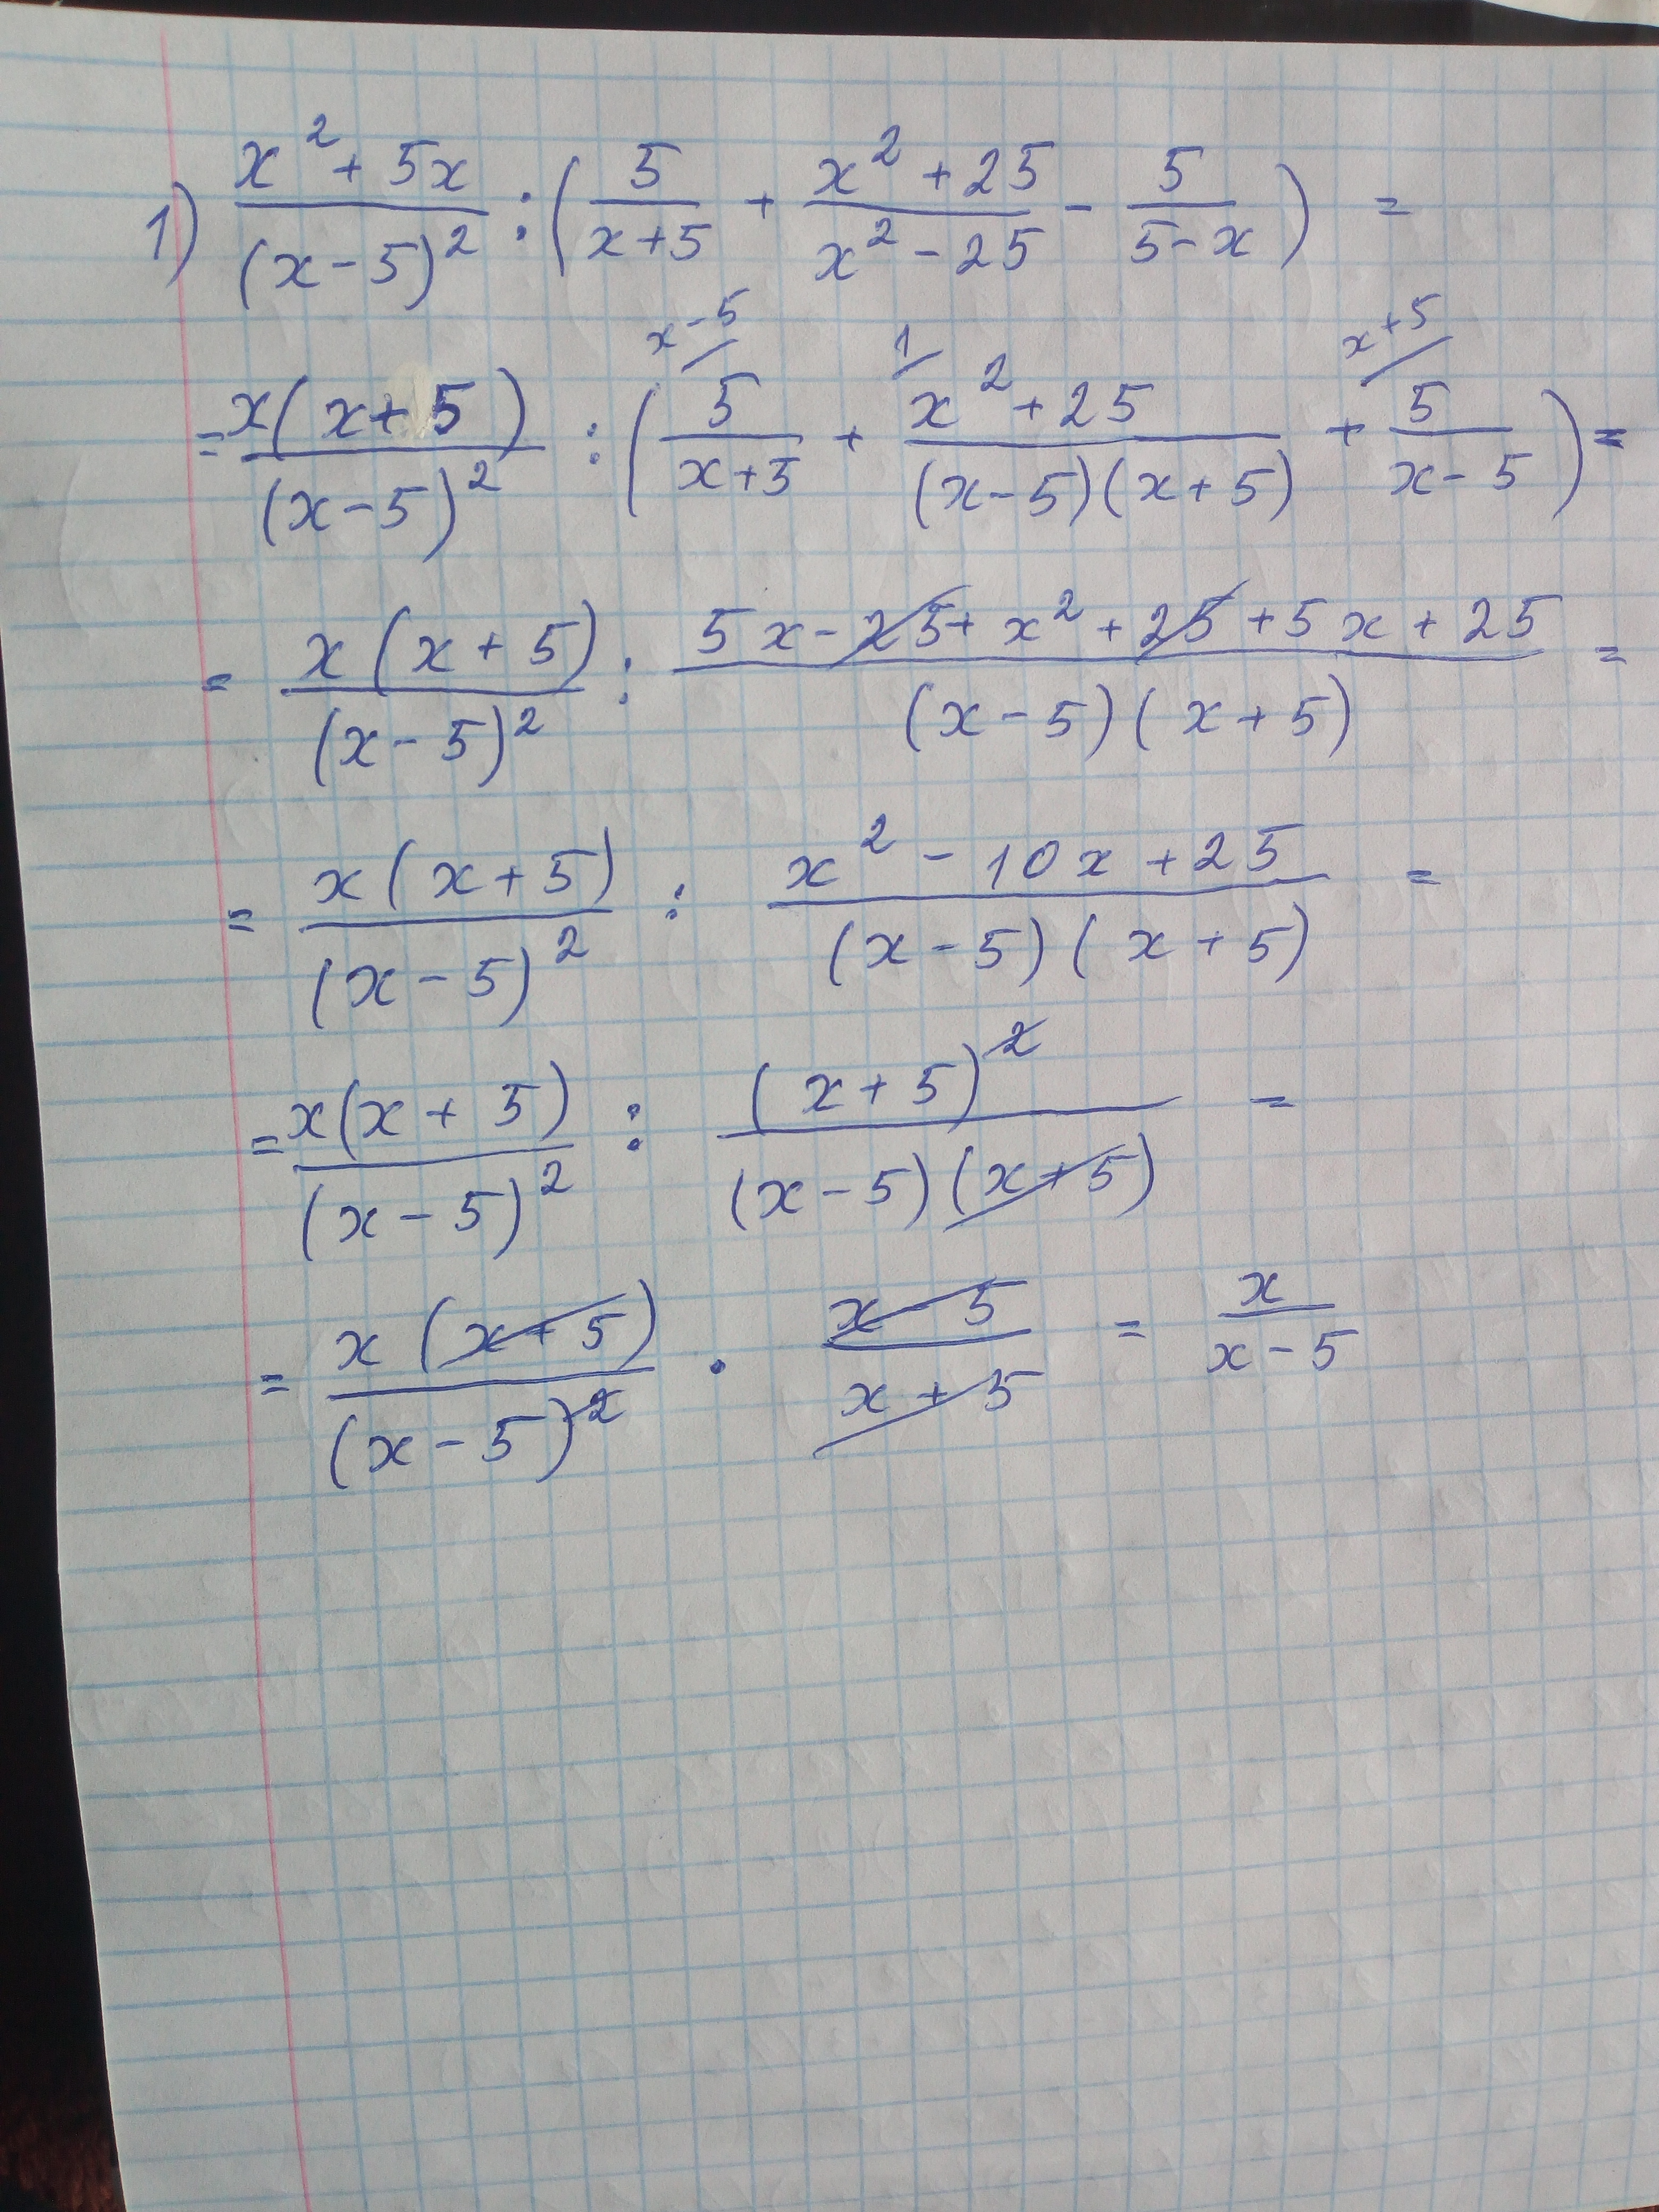 1) (x² + 5x)/(x - 5)² : (5/(x+5) + (x² + 25)/(x² - 25) - 5/(5 - x)) =
= x(x + 5)/(x - 5)² : (x-5/ 5/(x+5) + 1/ (x² + 25)/((x-5)(x+5)) + x+5/ 5/(x-5)) =
= x(x + 5)/(x - 5)² : (5x - 25 + x² + 25 + 5x + 25)/((x - 5)(x + 5)) =
= x(x + 5)/(x - 5)² : (x² - 10x + 25)/((x - 5)(x + 5)) =
= x(x + 5)/(x - 5)² : (x + 5)²/((x - 5)(x + 5)) =
= x(x + 5)/(x - 5)² · (x - 5)/(x + 5) = x/(x - 5)